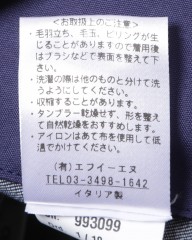 <お取扱上のご注意>
・毛羽立ち、毛玉、ピリングが生
じることがありますので着用後
はブラシなどで表面を整えて下
さい。
・洗濯の際は他のものと分けて洗
うようにしてください。
・収縮することがあります。
・タンブラー乾燥せず、形を整え
て自然乾燥をおすすめします。
・アイロンはあて布を使用して低
温でかけてください。
(有)エフイーエヌ
TEL03-3498-1642
イタリア製
993099